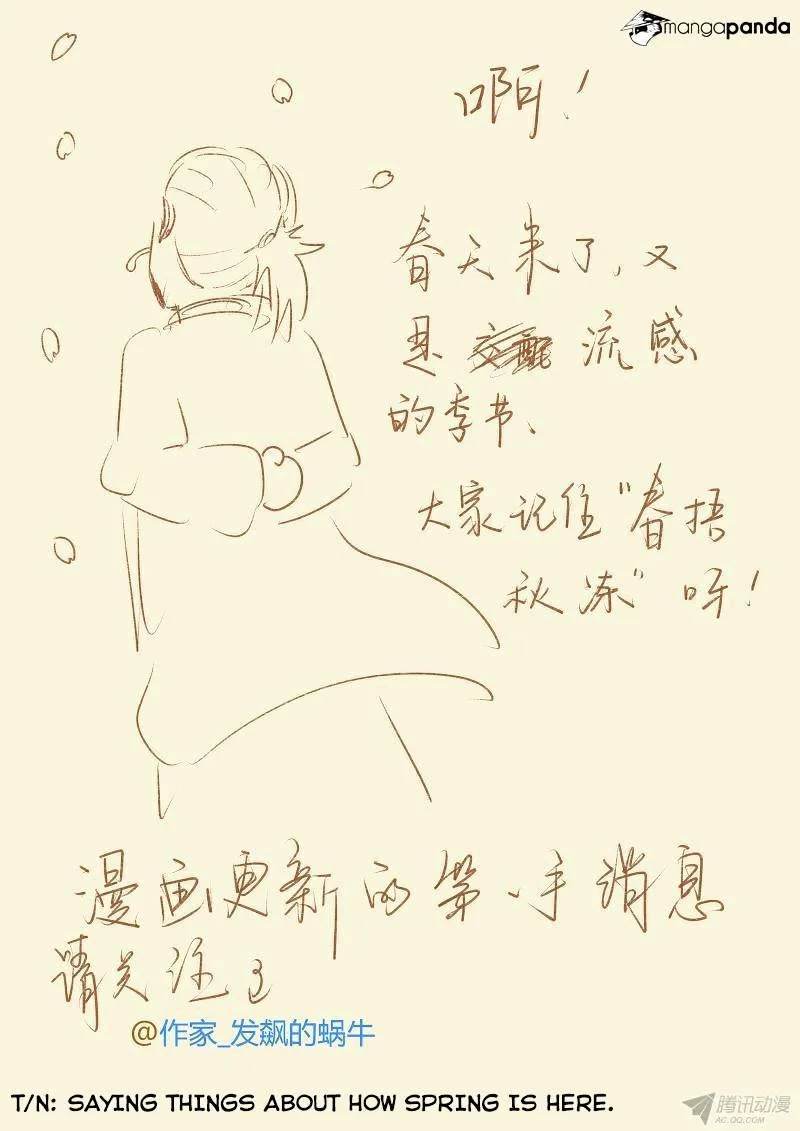 mangapanda
啊!
春天来了,又
是 交配 流感
的季节、
大家记住"春捂
秋冻"呀!
漫画更新的第一手消息
请关注
@作家_发飙的蜗牛
T/N: SAYING THINGS ABOUT HOW SPRING IS HERE.
腾讯动漫
AC.QQ.COM